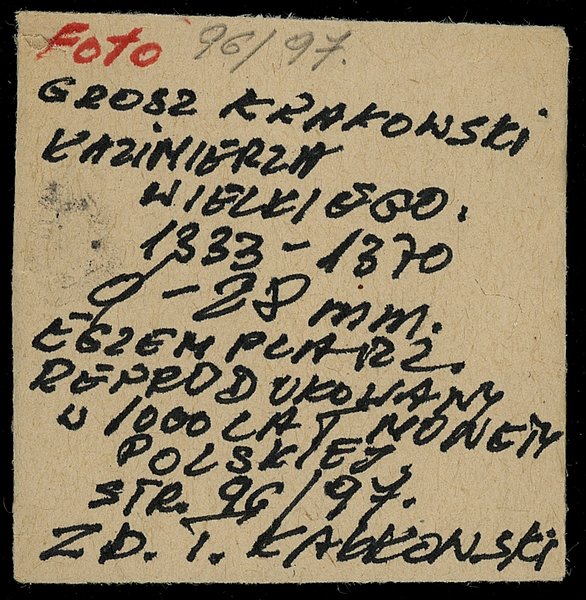 Foto 96/97.
GROSZ KRAKOWSKI
KAZIMIERZA
WIELKIEGO.
1333-1370
φ-28 mm.
EGZEMPLARZ
REPRODUKOWANY
W 1000 LAT MONETY
POLSKIEJ
STR. 96/97.
ZD. T. KAŁKOWSKI